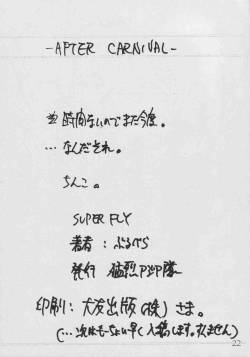 -AFTER CARNIVAL-
時間ないのでまた今度。
…なんだそれ。
ちんこ。
SUPER FLY
著者：ぶるべら
発行 猛烈PSP隊
印刷：大友出版(株)さま。
(…次はもーちょい早く入稿します。すいません)
22